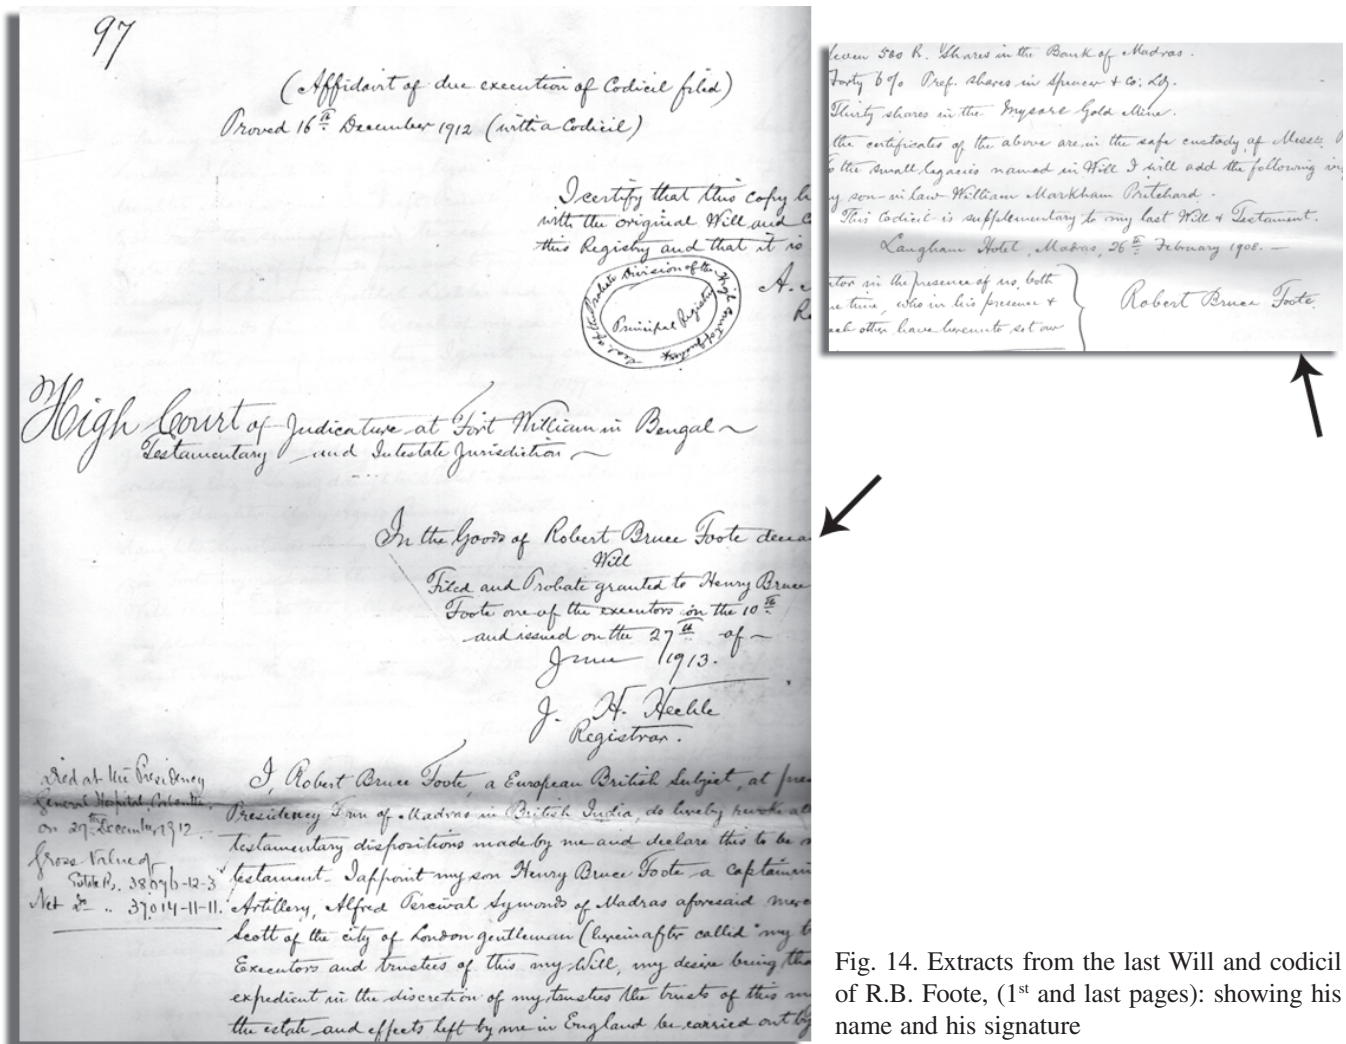 97
(Affidavit of due execution of Codicil filed)
Proved 16th December 1912 (with a Codicil)
I certify that this copy h
with the original Will and C
this Registry and that it is
A.
Seal of the Probate Division of the High Court of Justice
Principal Registry
High Court of Judicature at Fort William in Bengal
Testamentary and Intestate Jurisdiction
In the Goods of Robert Bruce Foote decea
Will
Filed and Probate granted to Henry Bruce
Foote one of the executors on the 10th
and issued on the 27th of
June 1913.
J. H. Hechle
Registrar.
Died at the Presidency
General Hospital, Calcutta,
on 29th December 1912.
Gross Value of
Estate Rs. 38076-12-3
Net do .. 37014-11-11.
I, Robert Bruce Foote, a European British Subject, at pre
Presidency Town of Madras in British India, do hereby revoke all
testamentary dispositions made by me and declare this to be m
testament. I appoint my son Henry Bruce Foote a captain in
Artillery, Alfred Percival Symonds of Madras aforesaid merc
Scott of the city of London gentleman (hereinafter called "my t
Executors and trustees of this my Will, my desire being tha
expedient in the discretion of my trustees the trusts of this m
the estate and effects left by me in England be carried out by
leven 500 R. Shares in the Bank of Madras.
Forty 6% Pref. shares in Spencer & Co: Ld.
Thirty shares in the Mysore Gold Mine.
the certificates of the above are in the safe custody of Messrs.
to the small legacies named in Will I will add the following
y son-in-law William Markham Pritchard.
This Codicil is supplementary to my last Will & Testament.
Langham Hotel, Madras, 26th February 1908.
tor in the presence of us, both
e time, who in his presence &
each other have hereunto set our
Robert Bruce Foote.
Fig. 14. Extracts from the last Will and codicil
of R.B. Foote, (1st and last pages): showing his
name and his signature